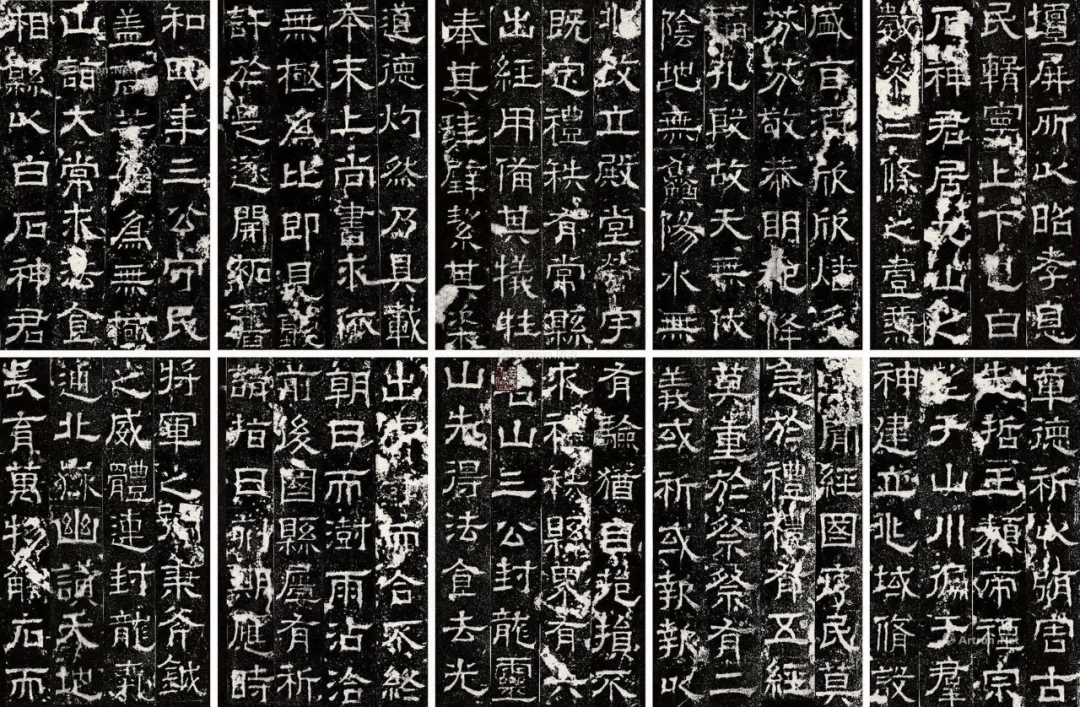 壇屏所以昭孝息
民輯寧上下也白
石神君居九山之
數參三條之壹兼
盛旨酒欣欣燔炙
芬芬敬恭明祀降
福孔殷故天無伏
陰地無鱻陽水無
兆改立殿堂營宇
既定禮秩有常縣
出經用備其犧牲
奉其珪璧絜其粢
道德灼然乃具載
本末上尚書求依
無極為比即見聽
許於是遂開拓舊
和四年三公守民
蓋高等始為無極
山詣大常求法食
相縣以白石神君
章德祈以弭害古
先哲王類帝禋宗
望于山川徧于群
神建立兆域脩設
蓋聞經國序民莫
急於禮禮有五經
莫重於祭祭有二
義或祈或報報以
有驗猶自挹損不
求禮秩縣界有六
名山三公封龍靈
山先得法食去光
出膚寸而合不終
朝日而澍雨沾洽
前後國縣屢有祈
請指日刻期應時
將軍之號秉斧鉞
之威體連封龍氣
通北嶽幽讚天地
長育萬物觸石而